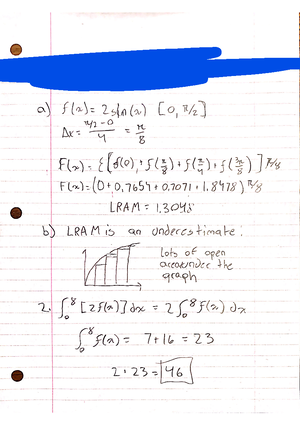 a) f(x) = 2sin(x) [0, π/2]
Δx = π/2 - 0 / 4 = π/8
F(x) = {[f(0), + f(π/8) + f(π/4) + f(3π/8)] π/8
F(x) = (0 + 0.7654 + 0.7071 + 1.8478) π/8
LRAM = 1.3048
b) LRAM is an underestimate:
Lots of open
area under the
graph
2. ∫₀⁸ [2f(x)] dx = 2∫₀⁸ f(x) dx
∫₀⁸ f(x) = 7 + 16 = 23
2 · 23 = 46